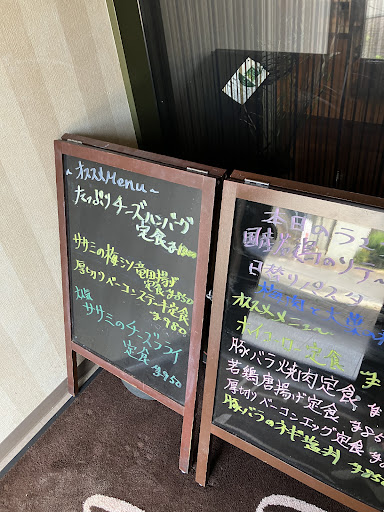 ~ オススメMenu ~
たっぷりチーズハンバーグ
定食
ササミの梅シソ竜田揚げ
定食 ¥850
厚切りベーコンステーキ定食
¥980
ササミのチーズフライ
定食 ¥950
本日の
日替りパスタ
オススメメニュー
ホイコーロー定食
豚バラ焼肉定食
若鶏唐揚げ定食
厚切りベーコンエッグ定食
豚バラのネギ塩